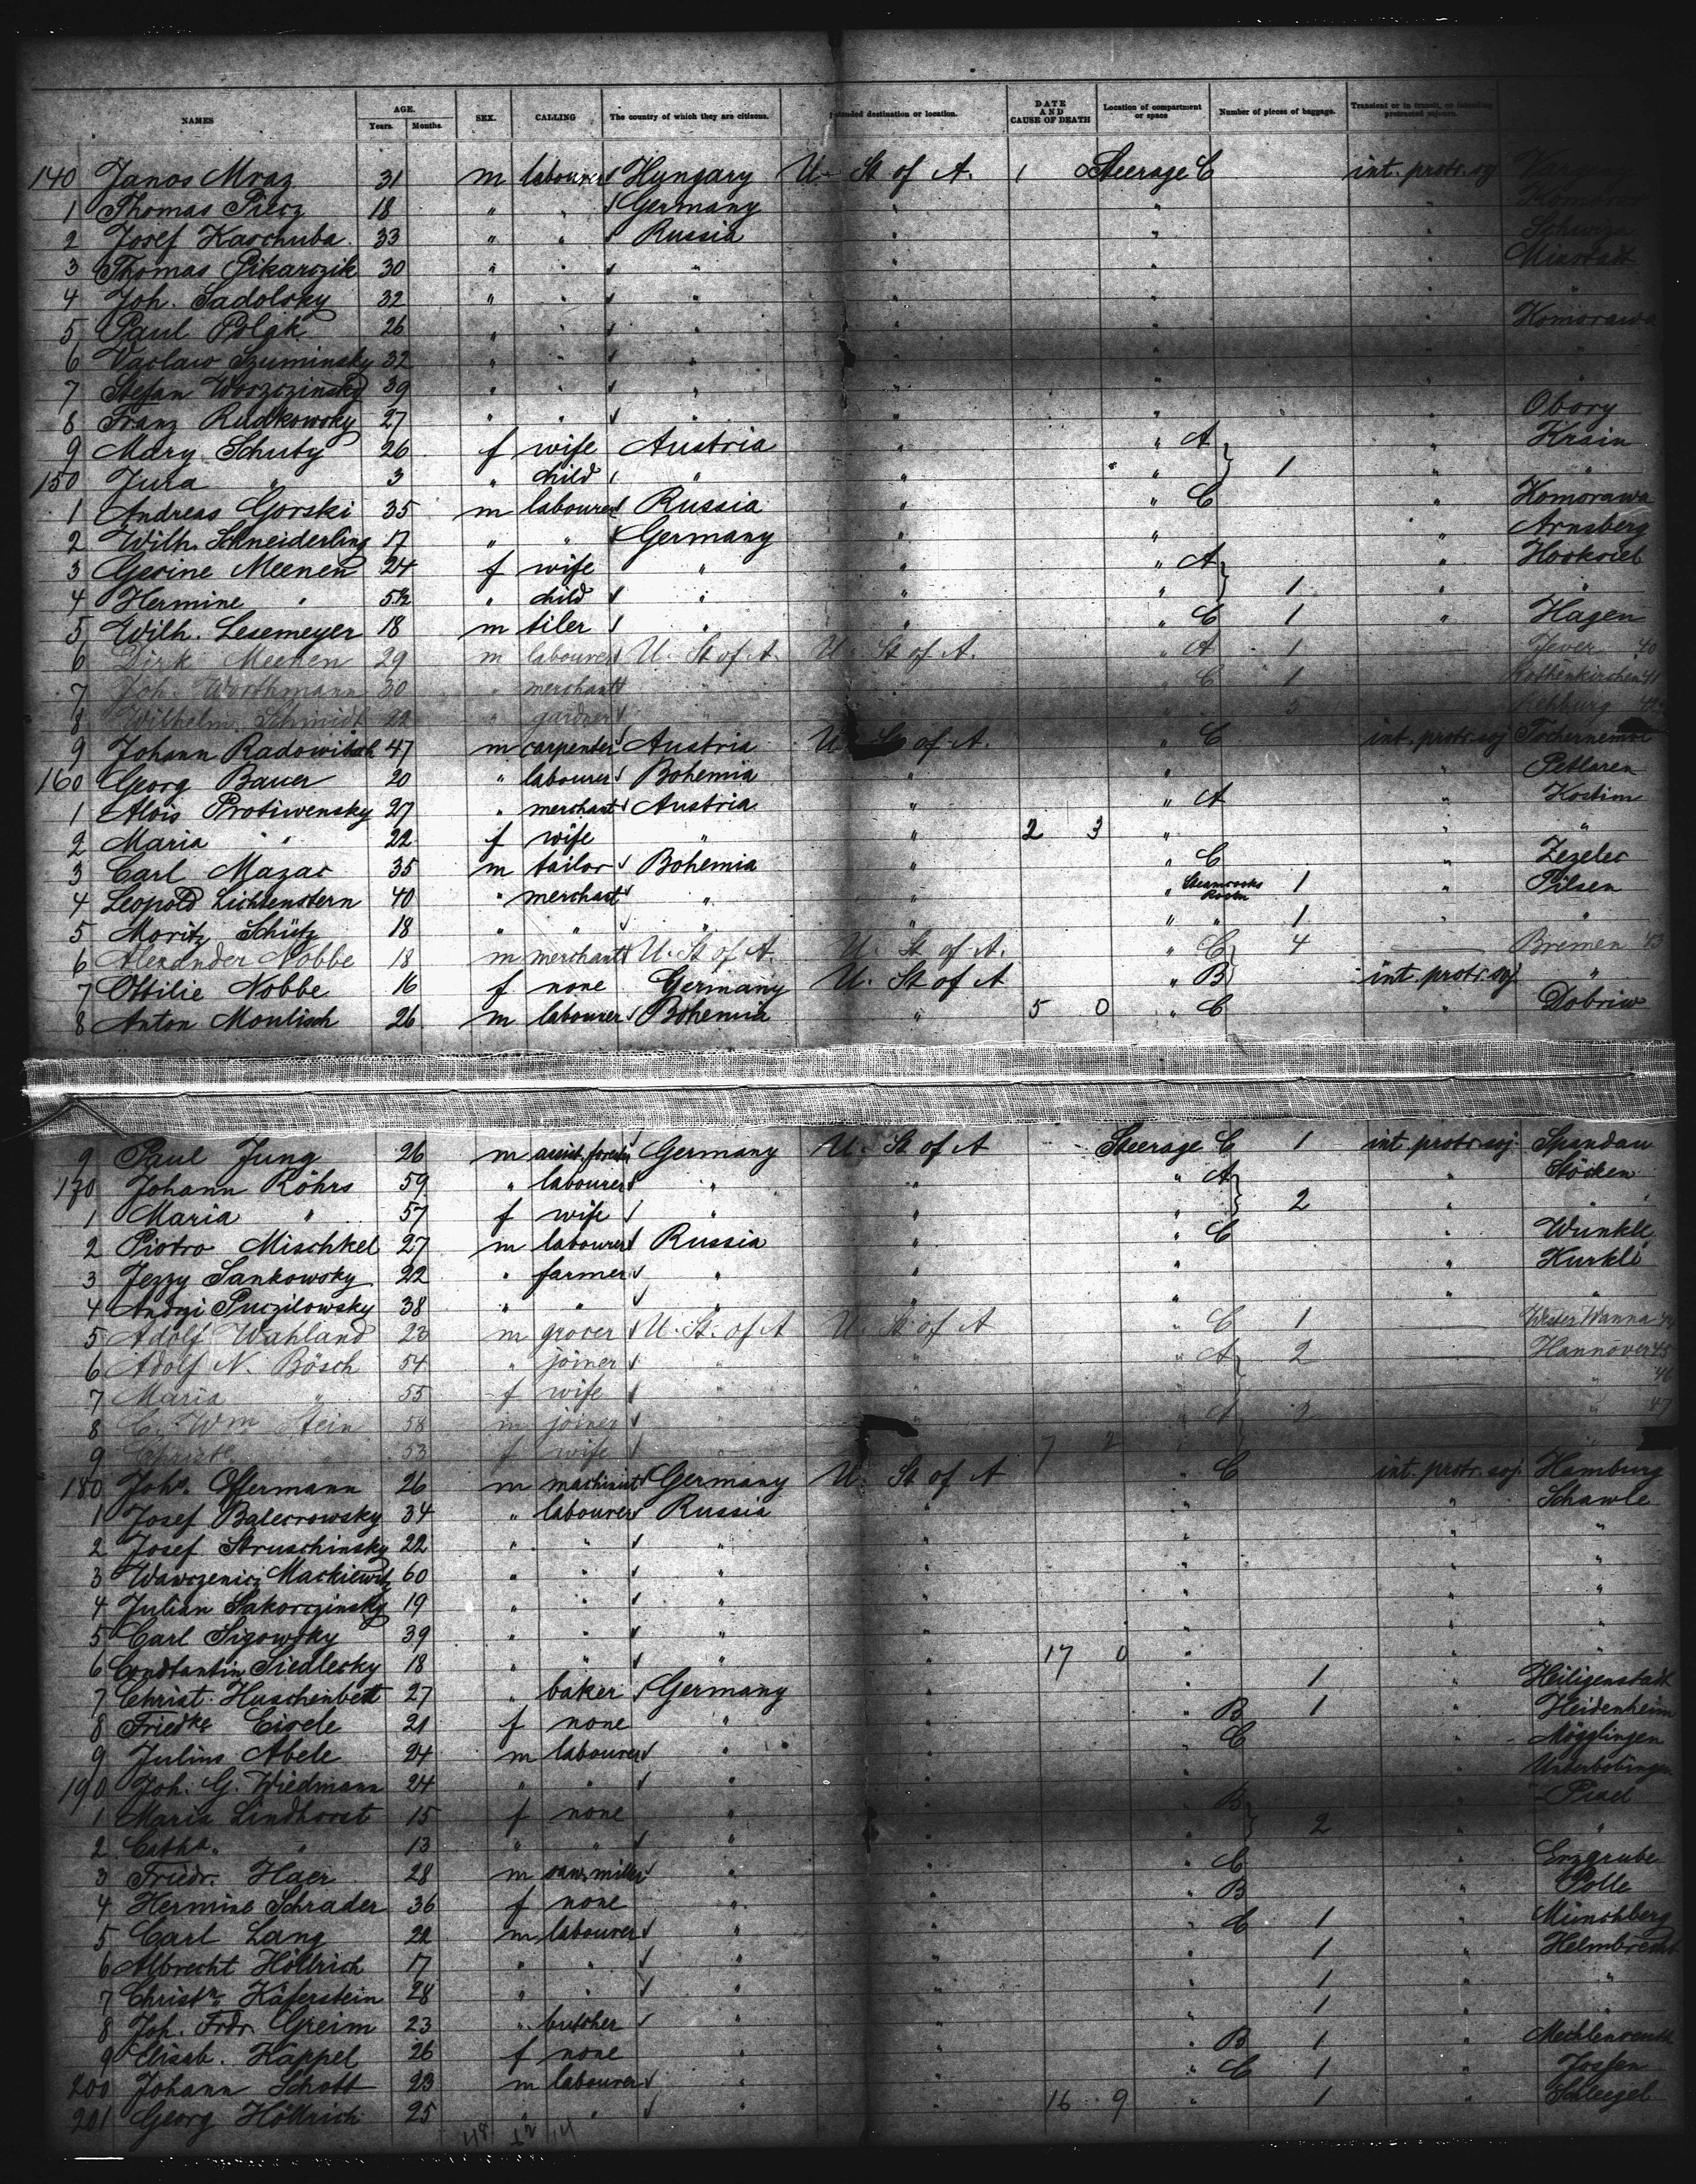 NAMES AGE. SEX. CALLING The country of which they are citizens. Intended destination or location. DATE AND CAUSE OF DEATH Location of compartment or space Number of pieces of baggage. Transient or in transit, or intending protracted sojourn.
Years. Months.
140 Janos Mraz 31 m labourer Hungary U. St of A. 1 Steerage C int. protr. soj
1 Thomas 18 " " Germany " " "
2 Josef Kaschuba 33 " " Russia " " "
3 Thomas 30 " " " " " "
4 Joh. Sadolsky 32 " " " " " " "
5 Paul Polak 26 " " " " " " Komorawa
6 Vaclaw Szuminsky 32 " " " " " " "
7 Stefan 39 " " " " " " "
8 Franz Rudkowsky 27 " " " " " " Obory
9 Mary Schuty 26 f wife Austria " " A " Krain
150 Jura " 3 " child " " " 1 " "
1 Andreas Gorski 35 m labourer Russia " " C " Komorawa
2 Wilh. Schneiderling 17 " " Germany " " " Arnsberg
3 Gesine Meenen 24 f wife " " " A " Hooksiel
4 Hermine " child " " " 1 " "
5 Wilh. Lesemeyer 18 m tiler " " " C 1 " Hagen
6 Dirk Meenen 29 m labourer U. St of A. U. St of A. " A 1 — Jever 40
7 Joh. Worthmann 30 " merchant " " " C 1 — Rothenkirchen 41
8 Wilhelm Schmidt 22 " gardner " " " — Rehburg 42
9 Johann Radowitsch 47 m carpenter Austria U. St of A. " C int. protr. soj
160 Georg Bauer 20 " labourer Bohemia " " " Petlaren
1 Alois Protiwensky 27 " merchant Austria " " A " Kostim
2 Maria " 22 f wife " " 2 3 " " "
3 Carl Mazac 35 m tailor Bohemia " " C " Zezelec
4 Leopold Lichtenstern 40 " merchant " " " 1 " Pilsen
5 Moritz Schütz 18 " " " " " " 1 " "
6 Alexander Nobbe 18 m merchant U. St of A. U. St of A. " C 4 — Bremen 43
7 Ottilie Nobbe 16 f none Germany U. St of A " B int. protr. soj. "
8 Anton Moulisch 26 m labourer Bohemia " 5 0 " C " Dobriw
9 Paul Jung 26 m Germany U. St of A Steerage C 1 int. protr. soj. Spandau
170 Johann Röhrs 59 " labourer " " " A " Stöcken
1 Maria " 57 f wife " " " 2 " "
2 Piotro Mischkel 27 m labourer Russia " " C " Wunkle
3 Jezzy Sankowsky 22 " farmer " " " " Kurkle
4 Andrzi Puczilowsky 38 " " " " " " "
5 Adolf Wahland 23 m grocer U. St. of A U. St of A " C 1 — Wester Wanna 44
6 Adolf N. Bösch 54 " joiner " " " A 2 — Hannover 45
7 Maria " 55 f wife " " " — " 46
8 C. Wm Stein 58 m joiner " " " A 2 — " 47
9 Christe " 53 f wife " " 7 2 " "
180 Johs. Offermann 26 m machinist Germany U. St of A " C int. protr. soj. Hamburg
1 Josef Balecrowsky 34 " labourer Russia " " " Schawle
2 Josef Struschinsky 22 " " " " " " "
3 Wawczenicz Mackiewitz 60 " " " " " " "
4 Julian Sakorczinsky 19 " " " " " " "
5 Carl Sigowsky 39 " " " " " " "
6 Constantin Siedlecky 18 " " " " 17 0 " " "
7 Christ. Huschenbett 27 " baker Germany " " 1 " Heiligenstadt
8 Friedke Eisele 21 f none " " " B 1 " Heidenheim
9 Julius Abele 24 m labourer " " " C " Mögglingen
190 Joh. G. Wiedmann 24 " " " " " " Unterböbingen
1 Maria Lindhorst 15 f none " " " B "
2 Cath. " 13 " " " " " 2 " "
3 Friedr. Haer 28 m saw miller " " " C Erzgrube
4 Hermine Schrader 36 f none " " " B " Polle
5 Carl Lang 22 m labourer " " " C 1 " Münchberg
6 Albrecht Höllrich 17 " " " " " 1 " Helmbrecht
7 Christn. Käferstein 28 " " " " " 1 " "
8 Joh. Frdr. Greim 23 " butcher " " " 1 "
9 Elisab. Käppel 26 f none " " " B 1 "
200 Johann Schott 23 m labourer " " " C 1 "
201 Georg Höllrich 25 " " " " 16 9 " 1 " Schlegel